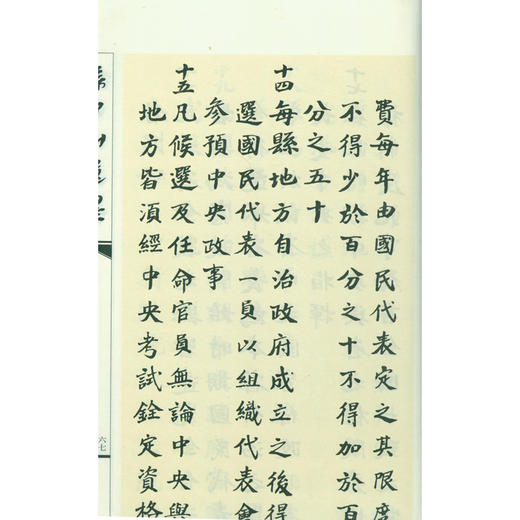 費每年由國民代表定之其限度
不得少於百分之十不得加於百
分之五十
十四每縣地方自治政府成立之後得
選國民代表一員以組織代表會
參預中央政事
十五凡候選及任命官員無論中央與
地方皆須經中央考試銓定資格
六七